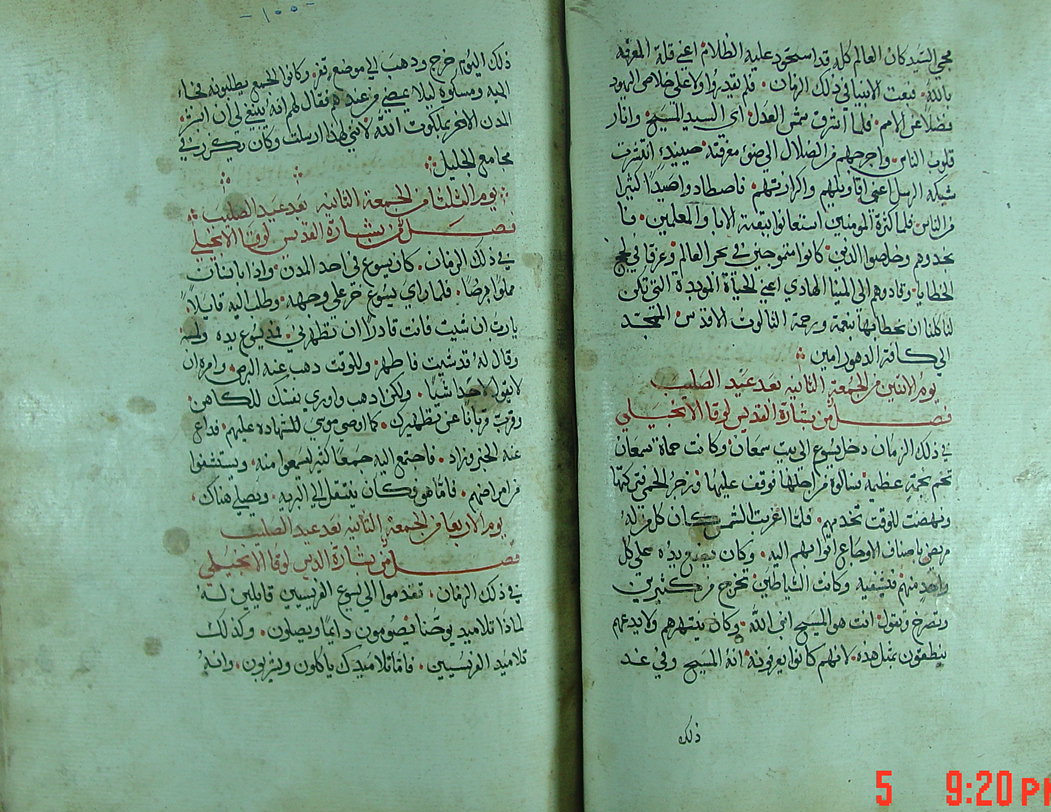 مجي السيد كان العالم كله قد استحوذ عليه الظلام اعني قلة المعرفة
بالله فبعث الانبيا في ذلك الزمان فلم يقدروا ولا على خلاص اليهود
فضلا عن الامم فلما اشرق شمس العدل اي السيد المسيح وانار
قلوب الناس واخرجهم من الضلال الى ضو معرفته حينيذ انتشرت
شبكة الرسل اعني اقاويلهم والكرازتهم فاصطادوا صيدا كثيرا
من الناس فلما كثرة المومنين استعانوا ببقية الابا والمعلمين فا
نجدوهم وخلصوا الذين كانوا متموجين في بحر العالم وغرقا في لجج
الخطايا وقادوهم الى المينا الهادي اعني الحياة الموبدة التي تكن
لنا كلنا ان نحظا بها بنعمة ورحمة الثالوث الاقدس الممجد
الى كافة الدهور امين
يوم الاثنين من الجمعة الثانية بعد عيد الصليب
فصل من بشارة القديس لوقا الانجيلي
في ذلك الزمان دخل يسوع الى بيت سمعان وكانت حماة سمعان
تحم بحمة عظيمة فسالوه من اجلها فوقف عليها فزجر الحمى فتركتها
ونهضت للوقت تخدمهم فلما اغربت الشمس كان كل من له
مريض باصناف الاوجاع اتوا بهم اليه وكان يضع يده على كل
واحد منهم فيشفيه وكانت الشياطين تخرج من كثيرين
وتصرخ وتقول انت هو المسيح ابن الله وكان ينتهرهم ولا يدعهم
ينطقون بمثل هذه لانهم كانوا يعرفونه انه المسيح وفي غد
ذلك
-١٠٠-
ذلك اليوم خرج وذهب الى موضع قفر وكانوا الجمع يطلبونه فجاءوا
اليه ومسكوه ليلا يمضي من عندهم فقال لهم انه ينبغي لي ان ابشر
المدن الاخر بملكوت الله لانني لهذا ارسلت وكان يكرز في
مجامع الجليل
يوم الثلثا من الجمعة الثانية بعد عيد الصليب
فصل من بشارة القديس لوقا الانجيلي
في ذلك الزمان كان يسوع في احد المدن واذا بانسان
مملوا برصا فلما راي يسوع خر على وجهه وطلب اليه قايلا
يا رب ان شيت فانت قادرا ان تطهرني فمد يسوع يده ولمسه
وقال له قد شيت فاطهر وللوقت ذهب عنه البرص وامره ان
لا يقول لاحد شيا ولكن اذهب واوري نفسك للكاهن
وقرب قربانا عن تطهيرك كما اوصى موسي للشهاده عليهم فذاع
عنه الخبر وزاد فاجتمع اليه جمعا كثير ليسمعوا منه ويستشفوا
من امراضهم فاما هو فكان ينتقل الى البريه ويصلي هناك
يوم الاربعا من الجمعة الثانيه بعد عيد الصليب
فصل من بشارة القديس لوقا الانجيلي
في ذلك الزمان تقدموا الى يسوع الفريسيين قايلين له
لماذا تلاميذ يوحنا يصومون دايما ويصلون وكذلك
تلاميذ الفريسيين فاما تلاميذك ياكلون ويشربون وانه
5 9:20 PM